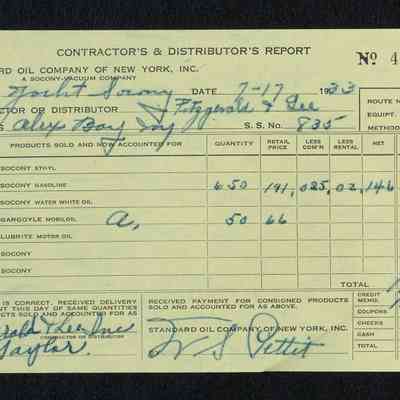 CONTRACTOR'S & DISTRIBUTOR'S REPORT
Nº 4
RD OIL COMPANY OF NEW YORK, INC.
A SOCONY-VACUUM COMPANY
Yacht Socony DATE 7-17 1933
ROUTE N
OR OR DISTRIBUTOR Fitzgerald & Lee
EQUIPT.
S Alex Bay NY S. S. No. 835
METHOD
PRODUCTS SOLD AND NOW ACCOUNTED FOR QUANTITY RETAIL PRICE LESS COM'N LESS RENTAL NET
SOCONY ETHYL
SOCONY GASOLINE 650 191 025 02 146
SOCONY WATER WHITE OIL
GARGOYLE MOBILOIL A, 50 66
LUBRITE MOTOR OIL
SOCONY
SOCONY
TOTAL
IS CORRECT. RECEIVED DELIVERY
OUNT THIS DAY OF SAME QUANTITIES
DUCTS SOLD AND ACCOUNTED FOR AS
RECEIVED PAYMENT FOR CONSIGNED PRODUCTS
SOLD AND ACCOUNTED FOR AS ABOVE.
CREDIT MEMO
COUPONS
CHECKS
CASH
TOTAL
erald & Lee Inc
CONTRACTOR OR DISTRIBUTOR
Taylor.
STANDARD OIL COMPANY OF NEW YORK, INC.
W S Pettit